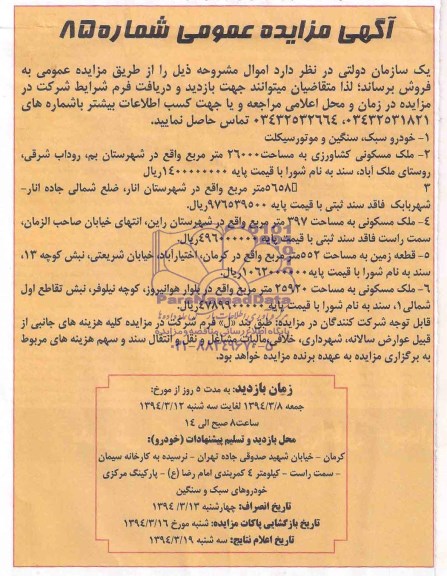 آگهی مزایده عمومی شماره ۸۵
یک سازمان دولتی در نظر دارد اموال مشروحه ذیل را از طریق مزایده عمومی به
فروش برساند؛ لذا متقاضیان میتوانند جهت بازدید و دریافت فرم شرایط شرکت در
مزایده در زمان و محل اعلامی مراجعه و یا جهت کسب اطلاعات بیشتر باشماره های
۰۳۴۳۲۵۳۱۸۲۱، ۰۳۴۳۲۵۳۲۶۶۴ تماس حاصل نمایید.
۱- خودرو سبک، سنگین و موتورسیکلت
۲- ملک مسکونی کشاورزی به مساحت۲۶۰۰۰ متر مربع واقع در شهرستان بم، روداب شرقی،
روستای ملک آباد، سند به نام شورا با قیمت پایه ۱۴۰۰۰۰۰۰۰۰ریال
۳ ۵۶۵۸متر مربع واقع در شهرستان انار، ضلع شمالی جاده انار-
شهربابک فاقد سند ثبتی با قیمت پایه ۹۷۶۵۳۹۵۰۰ریال
۴- ملک مسکونی به مساحت ۳۹۷ متر مربع واقع در شهرستان راین، انتهای خیابان صاحب الزمان،
سمت راست فاقد سند ثبتی با قیمت پایه ۴۹۶۰۰۰۰۰۰ریال
۵- قطعه زمین به مساحت ۵۵۲متر مربع واقع در کرمان، اختیارآباد، خیابان شریعتی، نبش کوچه ۱۳،
سند به نام شورا با قیمت پایه ۱۰۶۲۰۰۰۰۰۰ریال
۶- ملک مسکونی به مساحت ۲۵۹۲۰ متر مربع واقع در بلوار هوانیروز، کوچه نیلوفر، نبش تقاطع اول
شمالی۱، سند به نام شورا با قیمت پایه ۴۷۸۹۹۰۰۰۰۰۰ریال
قابل توجه شرکت کنندگان در مزایده: طبق بند «ل» فرم شرکت در مزایده کلیه هزینه های جانبی از
قبیل عوارض سالانه، شهرداری، خلافی، مالیات مشاغل و نقل و انتقال سند و سهم هزینه های مربوط
به برگزاری مزایده به عهده برنده مزایده خواهد بود.
زمان بازدید: به مدت ۵ روز از مورخ:
جمعه ۱۳۹۴/۳/۸ لغایت سه شنبه ۱۳۹۴/۳/۱۲
ساعت۸ صبح الی ۱۴
محل بازدید و تسلیم پیشنهادات (خودرو):
کرمان - خیابان شهید صدوقی جاده تهران - نرسیده به کارخانه سیمان
- سمت راست - کیلومتر ۴ کمربندی امام رضا (ع) - پارکینگ مرکزی
خودروهای سبک و سنگین
تاریخ انصراف: چهارشنبه ۱۳۹۴/۳/۱۳
تاریخ بازگشایی پاکات مزایده: شنبه مورخ ۱۳۹۴/۳/۱۶
تاریخ اعلام نتایج: سه شنبه ۱۳۹۴/۳/۱۹
ParsNamadData
پایگاه اطلاع رسانی مناقصه و مزایده
۰۲۱-۸۸۳۴۹۶۷۰-۵